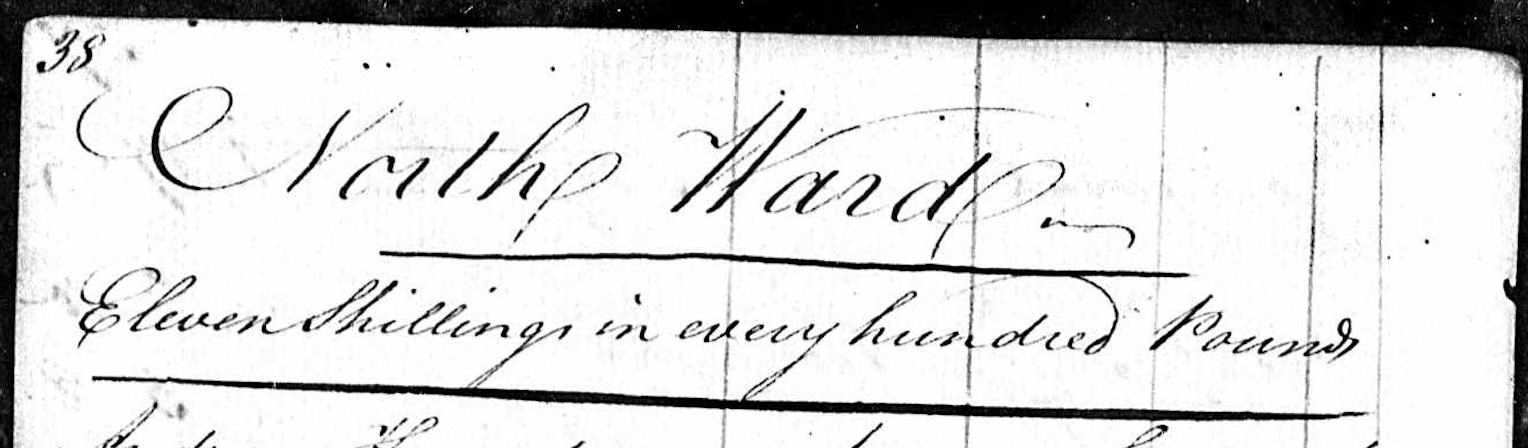 38
North Ward
Eleven Shillings in every hundred Pounds